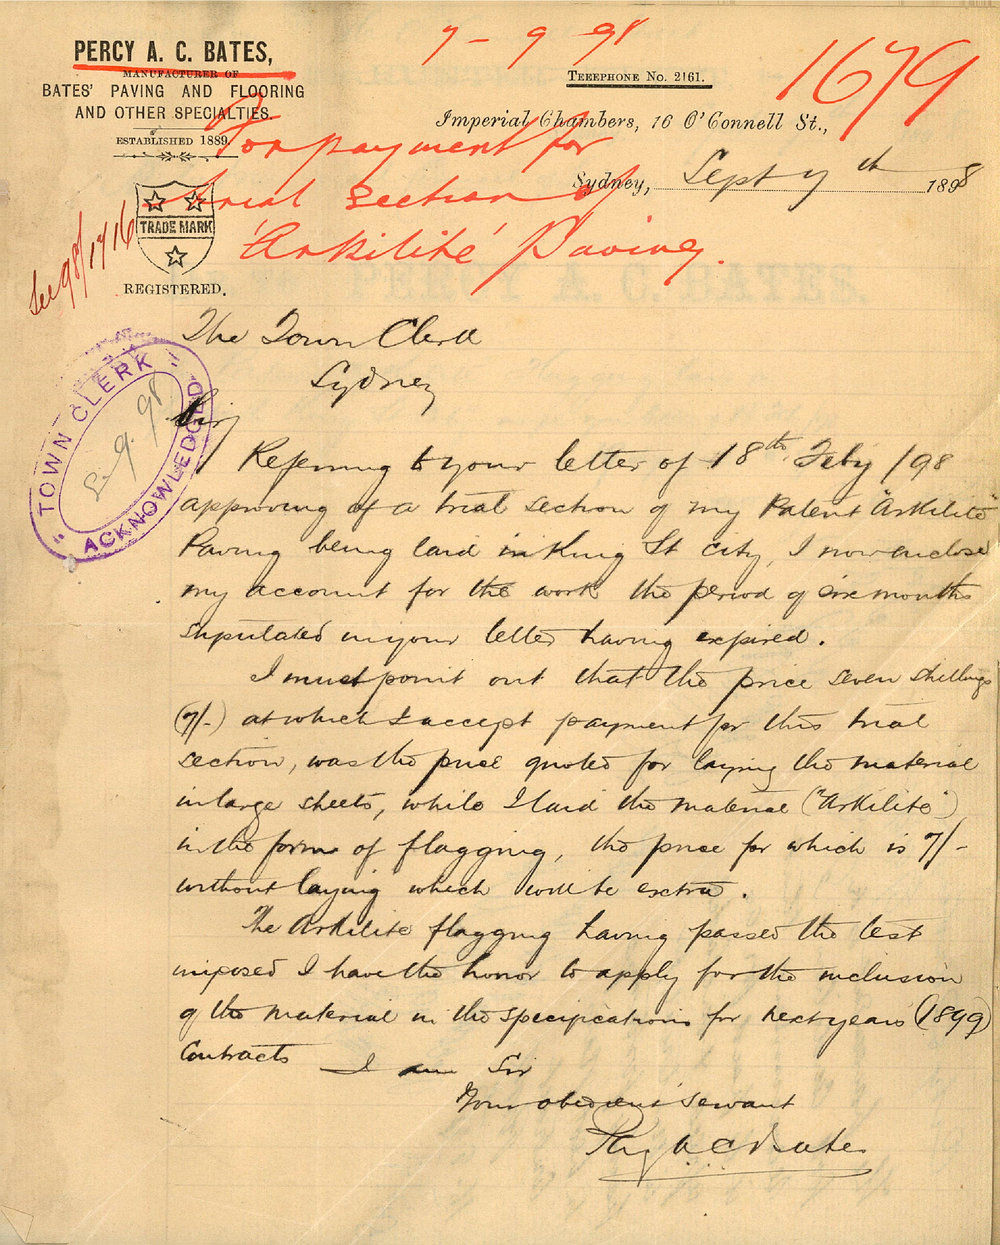 PERCY A. C. BATES,
MANUFACTURER OF
BATES' PAVING AND FLOORING
AND OTHER SPECIALTIES.
ESTABLISHED 1889.
TRADE MARK
REGISTERED.
7 - 9 98
TELEPHONE No. 2161.
1679
Imperial Chambers, 16 O'Connell St.,
Sydney, Sept 7th 1898
For payment for
trial section of
'Arkilite' Paving.
See 98/1716
TOWN CLERK
9.98
ACKNOWLEDGED
The Town Clerk
Sydney
Sir/
Referring to your letter of 18th Feby /98
approving of a trial section of my Patent "Arkilite"
Paving being laid in King St city, I now enclose
my account for the work the period of six months
stipulated in your letter having expired.
I must point out that the price seven shillings
(7/-) at which I accept payment for this trial
section, was the price quoted for laying the material
in large sheets, while I laid the material ("Arkilite")
in the form of flagging, the price for which is 7/-
without laying which will be extra.
The Arkilite flagging having passed the test
imposed I have the honor to apply for the inclusion
of the material in the specifications for next years (1899)
Contracts
I am Sir
Your obedient servant
Percy A C Bates